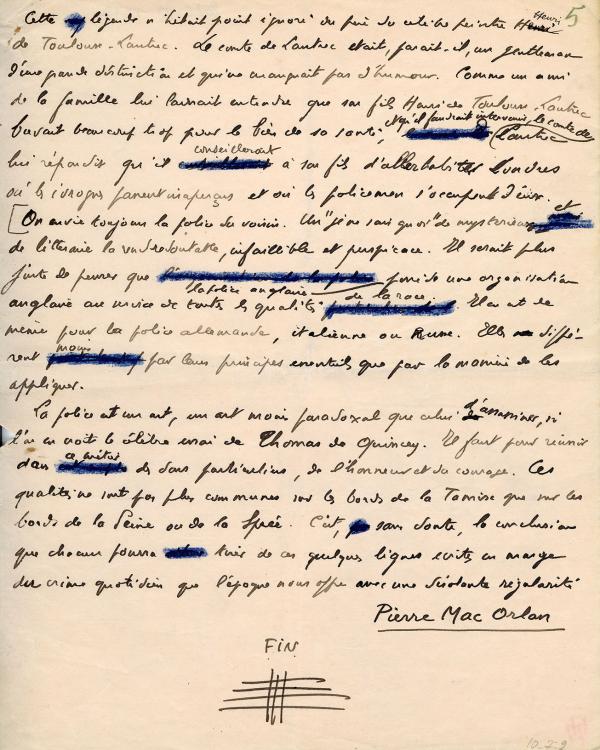 5
Cette légende n'était point ignorée du père du célèbre peintre Henri
de Toulouse-Lautrec. Le comte de Lautrec était, paraît-il, un gentleman
d'une grande distinction et qui ne manquait pas d'humour. Comme un ami
de la famille lui laissait entendre que son fils Henri de Toulouse-Lautrec
buvait beaucoup trop pour le bien de sa santé, et qu'il faudrait intervenir, le comte de Lautrec
lui répondit qu'il conseillerait à son fils d'aller habiter Londres
où les ivrognes passent inaperçus et où les policemen s'occupent d'eux.
On envie toujours la police du voisin. Un "je ne sais quoi" de mystérieux et
de littéraire la rend redoutable, infaillible et perspicace. Il serait plus
juste de penser que la police anglaise possède une organisation
anglaise au service de toutes les qualités de la race. Il en est de
même pour la police allemande, italienne ou Russe. Elles diffè-
rent moins par leurs principes essentiels que par la manière de les
appliquer.
La police est un art, un art moins paradoxal que celui d'assassiner, si
l'on en croit le célèbre essai de Thomas de Quincey. Il faut pour réussir
dans ce métier des dons particuliers, de l'honneur et du courage. Ces
qualités ne sont pas plus communes sur les bords de la Tamise que sur les
bords de la Seine ou de la Sprée. C'est, sans doute, la conclusion
que chacun pourra tirer de ces quelques lignes écrites en marge
du crime quotidien que l'époque nous offre avec une désolante régularité
Pierre Mac Orlan
FIN